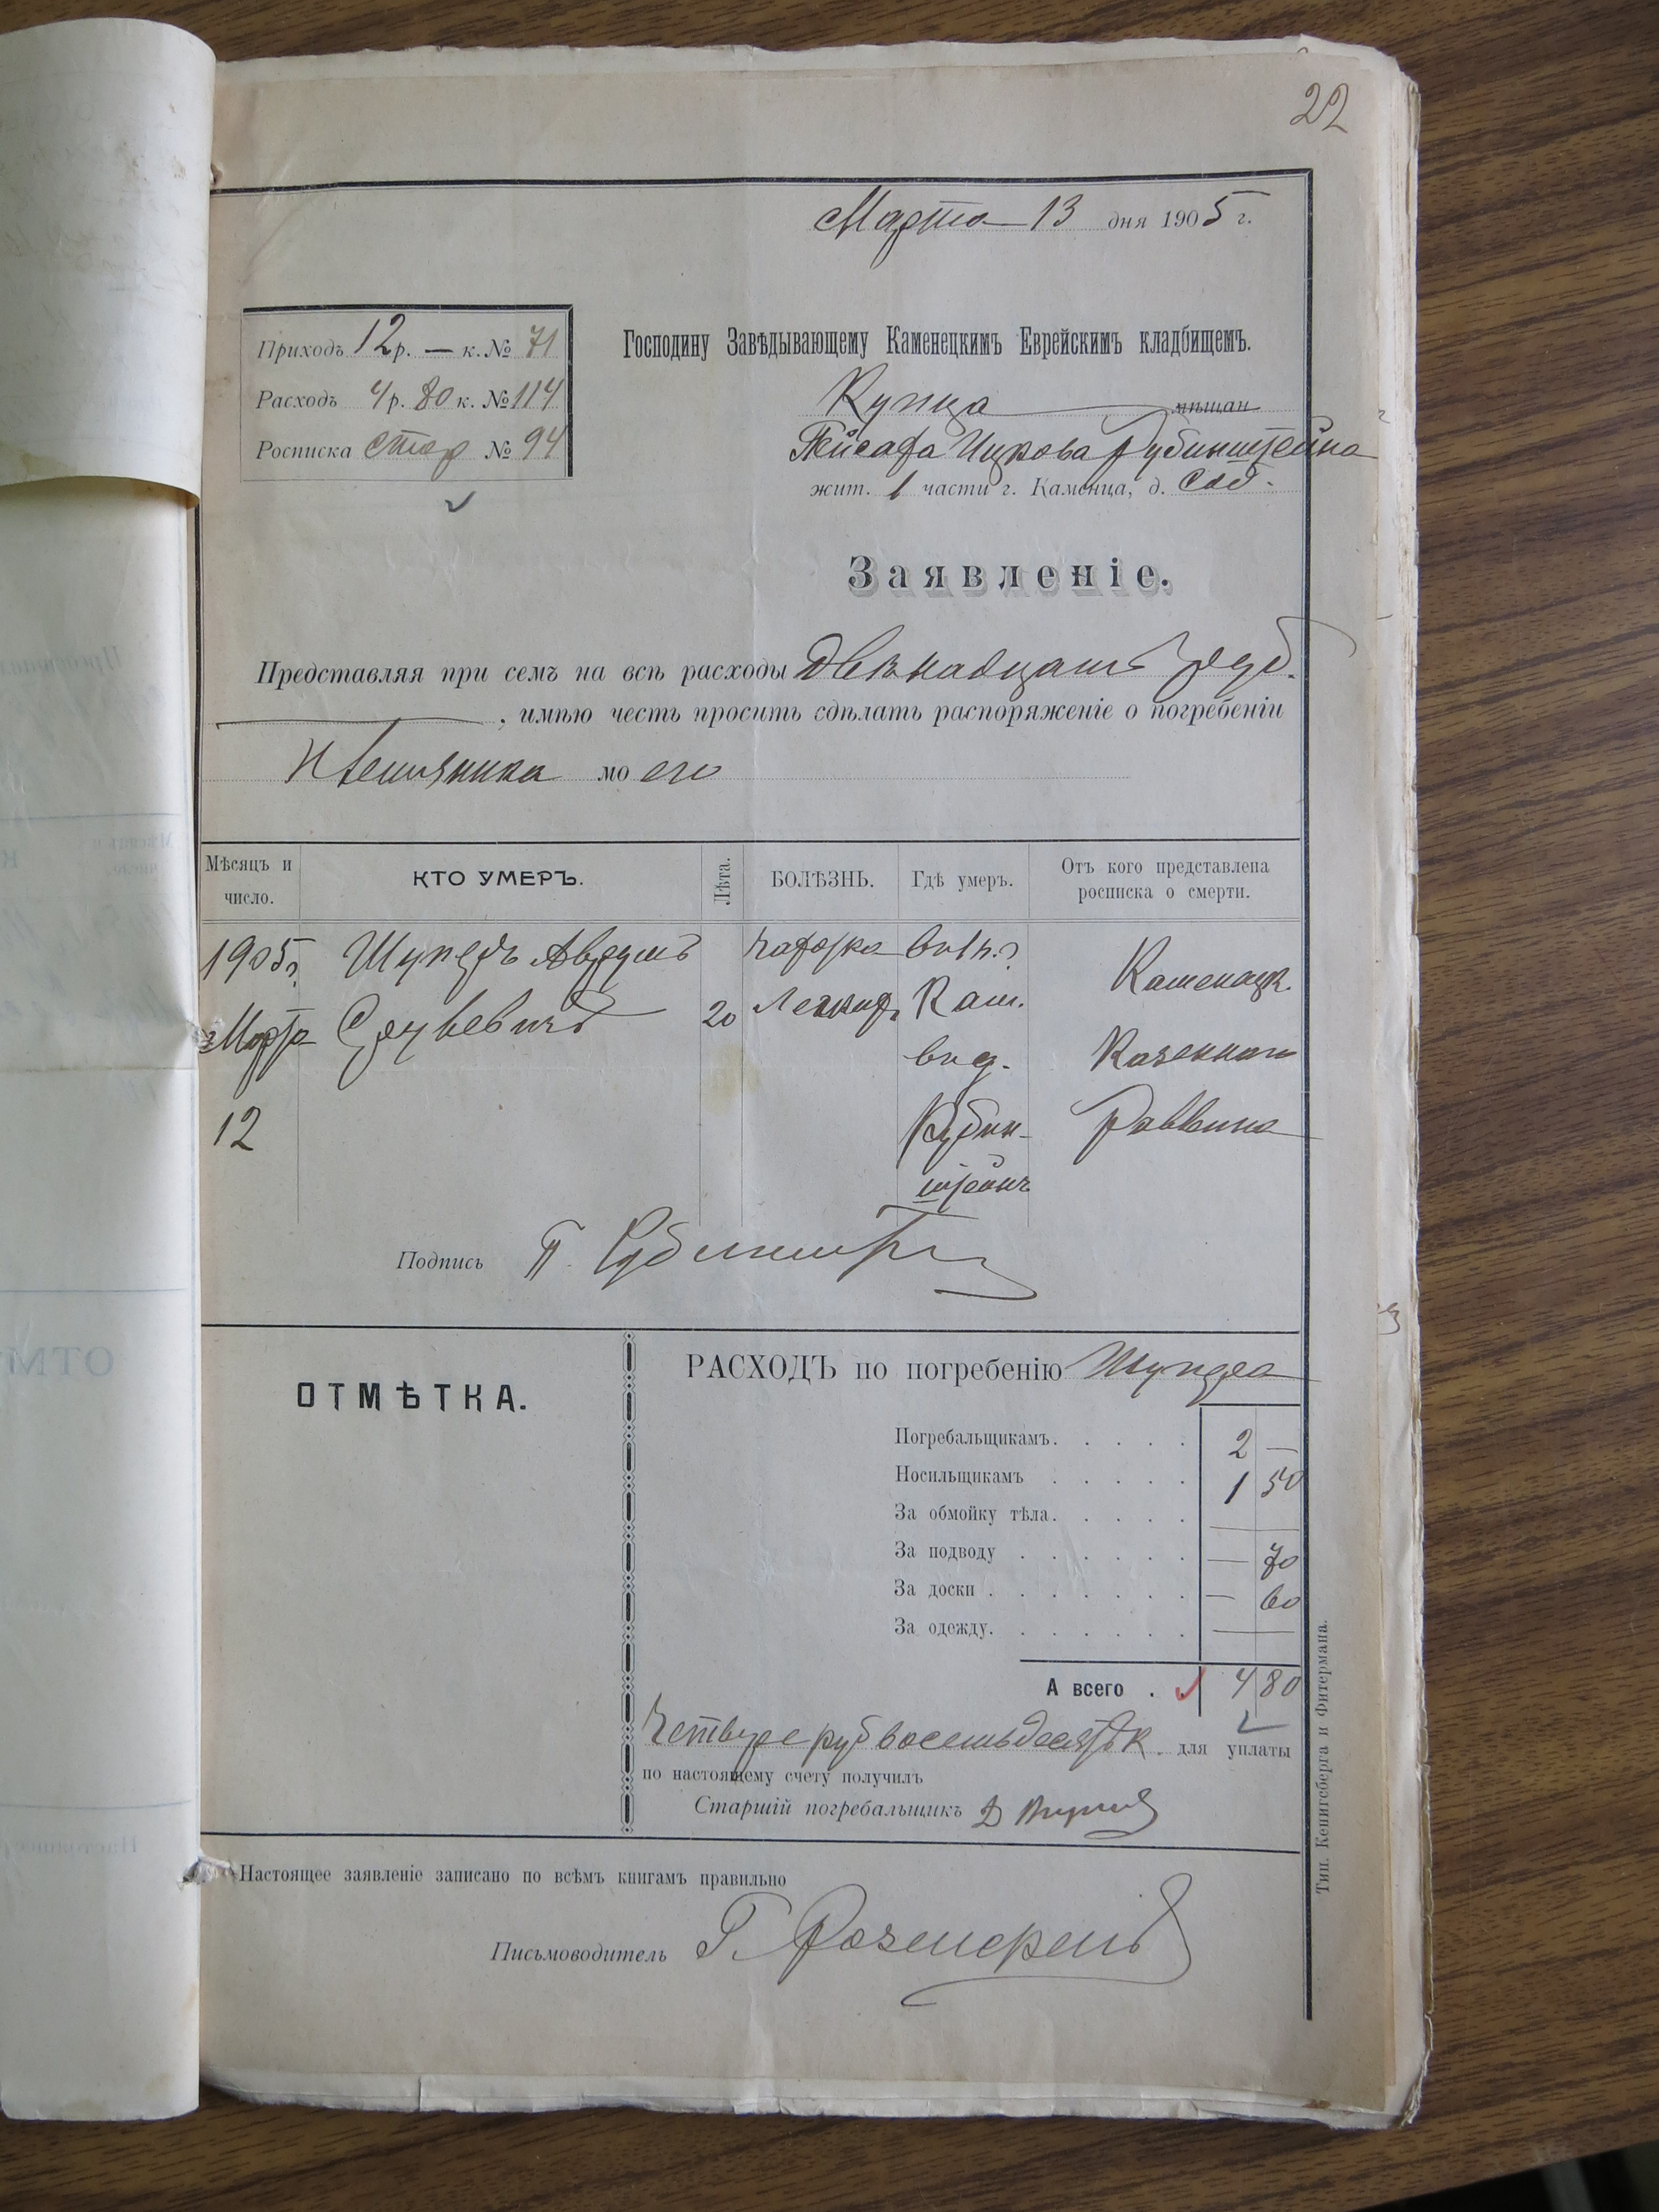 22
Марта 13 дня 1905 г.
Приходъ 12 р. — к. № 71
Расходъ 4 р. 80 к. № 114
Росписка стар № 94
Господину Завѣдывающему Каменецкимъ Еврейскимъ кладбищемъ.
Купца мѣщан
Пейсаха Ицкова Рубинштейна
жит. 1 части г. Каменца, д. Соб.
Заявленіе.
Представляя при семъ на всѣ расходы двѣнадцать руб.
, имѣю честь просить сдѣлать распоряженіе о погребеніи
племянника моего
Мѣсяцъ и число.
КТО УМЕРЪ.
Лѣта.
БОЛѢЗНЬ.
Гдѣ умеръ.
Отъ кого представлена росписка о смерти.
1905 г. Чахотка
Марта 20 Легких Кам. Каменецк.
в д. Казеннаго
12 Рубин- Раввина
штейнъ
Подпись П. Рубинштейн
ОТМѢТКА.
РАСХОДЪ по погребенію
Погребальщикамъ. 2 —
Носильщикамъ 1 50
За обмойку тѣла. —
За подводу — 70
За доски — 60
За одежду. —
А всего 4 80
Четыре руб восемьдесятъ к. для уплаты
по настоящему счету получилъ
Старшій погребальщикъ
Настоящее заявленіе записано по всѣмъ книгамъ правильно
Письмоводитель Г.
Тип. Кенигсберга и Фитермана.